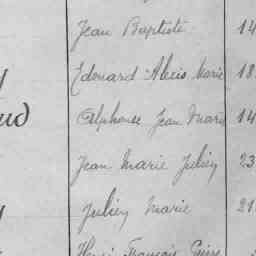 Jean Baptiste 14
Edouard Alexis Marie 18
ud Alphonse Jean Marie 14
Jean Marie Julien 23
y Julien Marie 21
Henri François